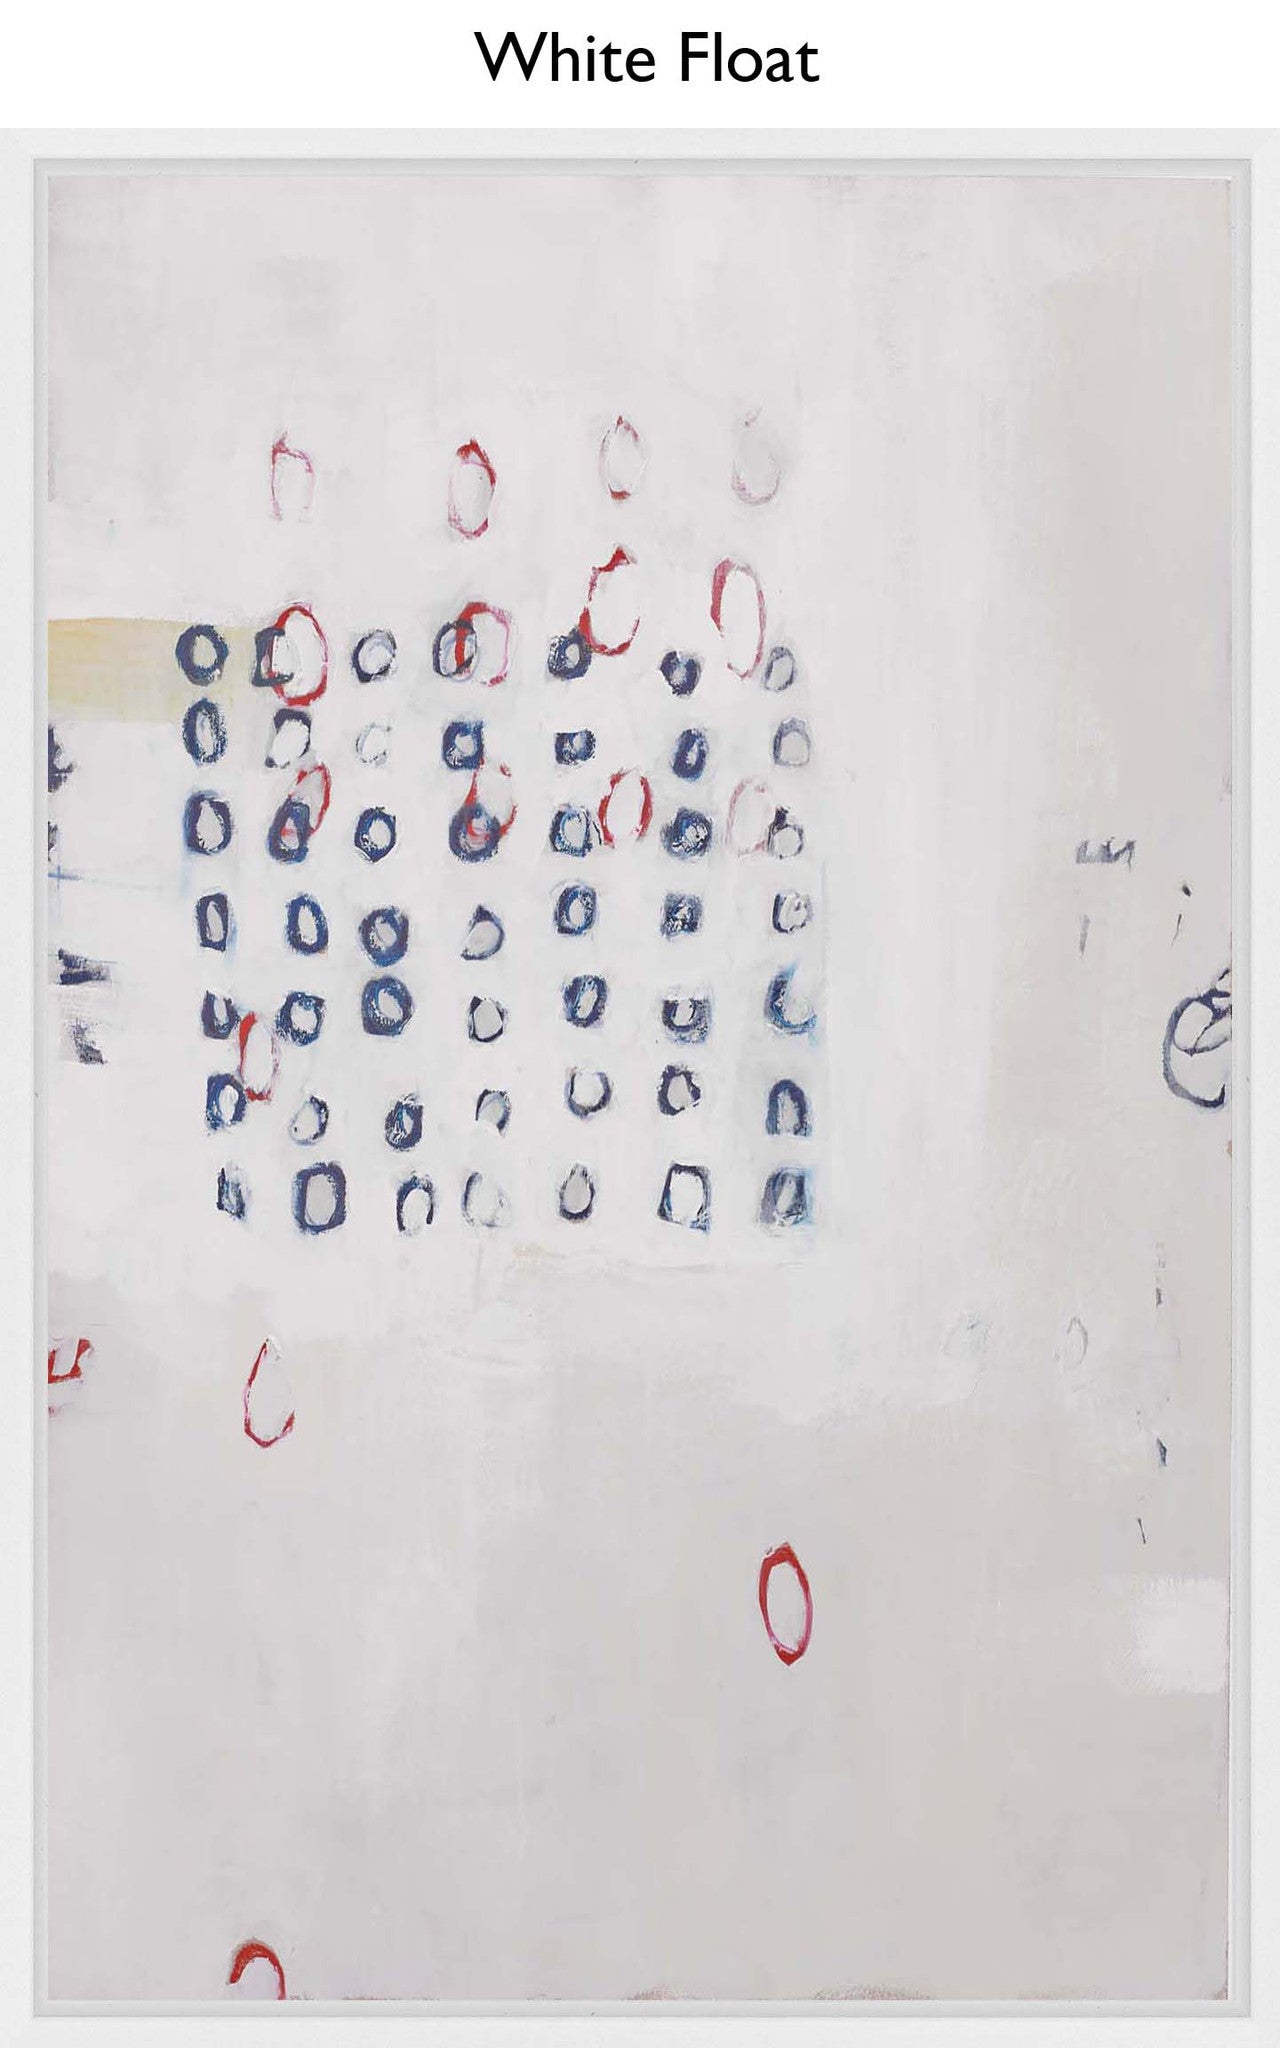 White Float